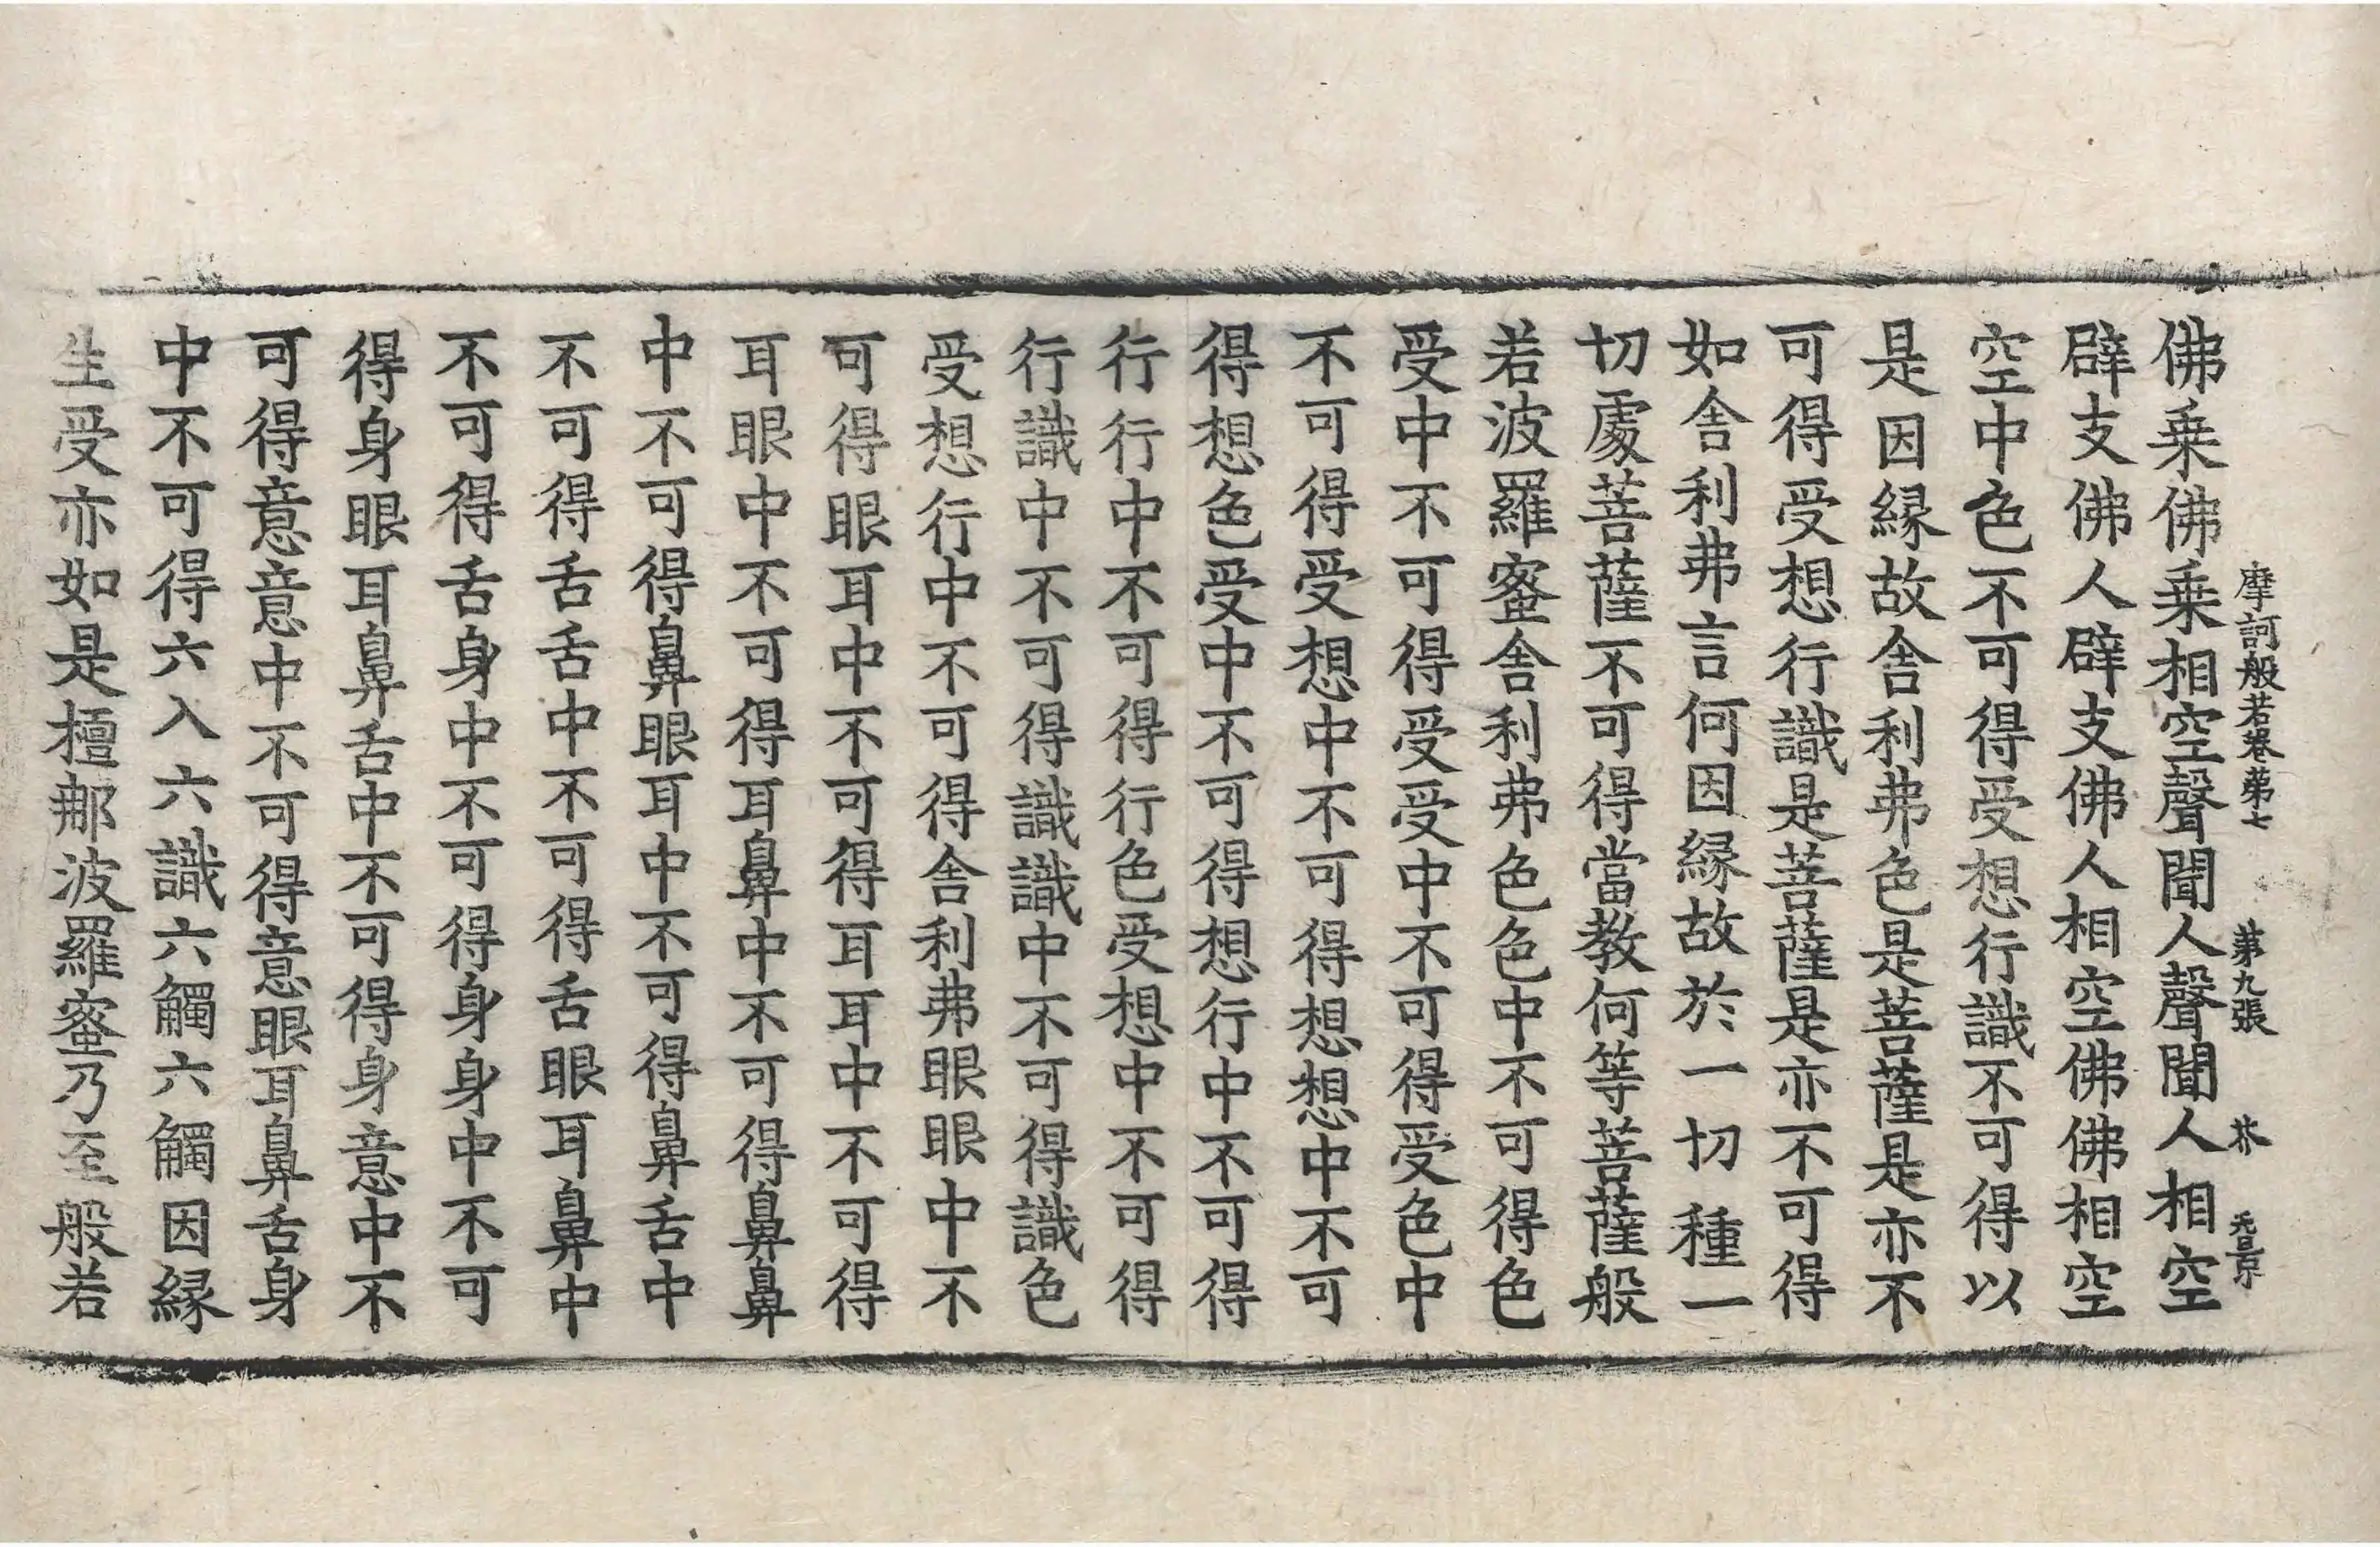 摩訶般若卷第七 第九張 芥 元景
佛乗佛乗相空聲聞人聲聞人相空
辟支佛人辟支佛人相空佛佛相空
空中色不可得受想行識不可得以
是因縁故舎利弗色是菩薩是亦不
可得受想行識是菩薩是亦不可得
如舎利弗言何因縁故於一切種一
切處菩薩不可得當教何等菩薩般
若波羅蜜舎利弗色色中不可得色
受中不可得受受中不可得受色中
不可得受想中不可得想想中不可
得想色受中不可得想行中不可得
行行中不可得行色受想中不可得
行識中不可得識識中不可得識色
受想行中不可得舎利弗眼眼中不
可得眼耳中不可得耳耳中不可得
耳眼中不可得耳鼻中不可得鼻鼻
中不可得鼻眼耳中不可得鼻舌中
不可得舌舌中不可得舌眼耳鼻中
不可得舌身中不可得身身中不可
得身眼耳鼻舌中不可得身意中不
可得意意中不可得意眼耳鼻舌身
中不可得六入六識六觸六觸因縁
生受亦如是檀那波羅蜜乃至般若